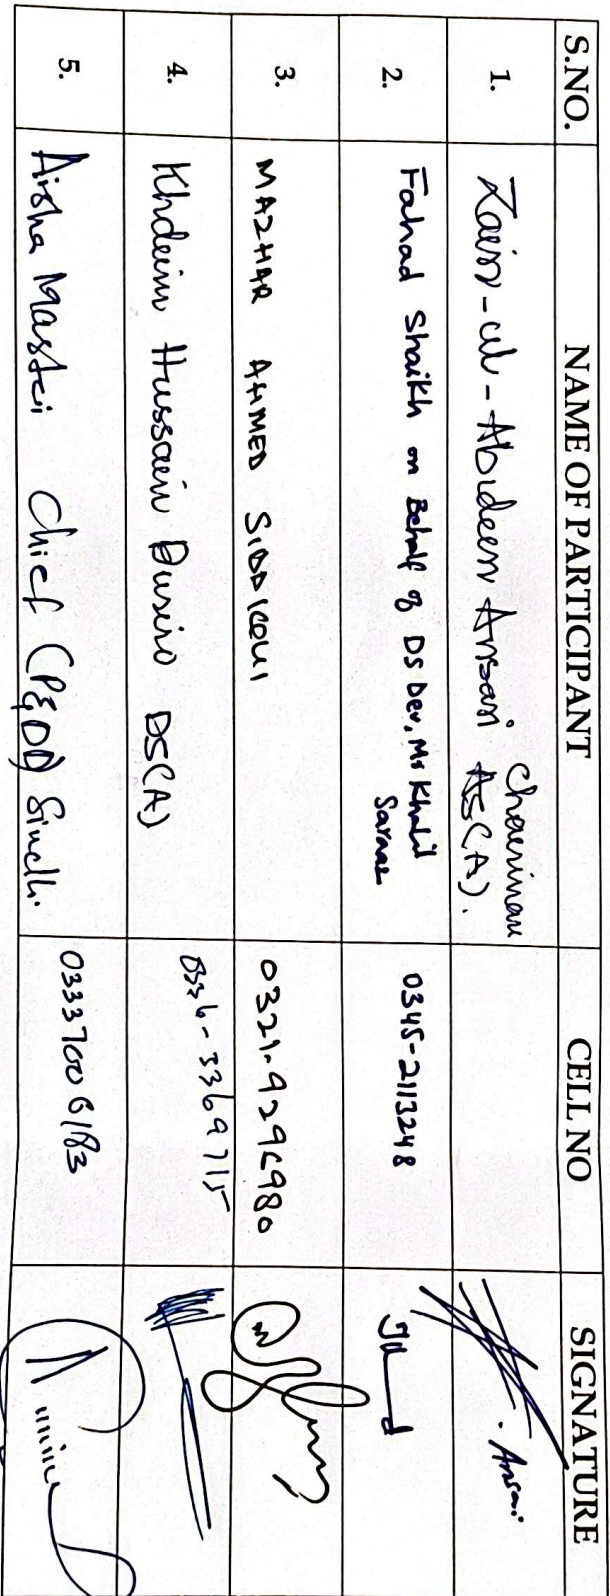 S.NO. NAME OF PARTICIPANT CELL NO SIGNATURE
1. Zain-ul-Abideen Ansari Chairman
AS(A).
. Ansari
2. Fahad Shaikh on Behalf of DS Dev, Mr Khalil 0345-2113248
3. MAZHAR AHMED SIDDIQUI 0321-9296980
4. Khdeim Hussain DS(A) 0336-3369715
5. Aisha Chief (P&DD) Sindh. 03337006183